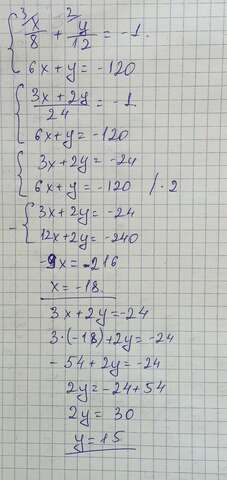 3 x/8 + 2 y/12 = -1.
6x + y = -120
(3x + 2y)/24 = -1
6x + y = -120
3x + 2y = -24
6x + y = -120 / · 2
- 3x + 2y = -24
12x + 2y = -240
-9x = -216
x = -18
3x + 2y = -24
3 · (-18) + 2y = -24
- 54 + 2y = -24
2y = -24 + 54
2y = 30
y = 15